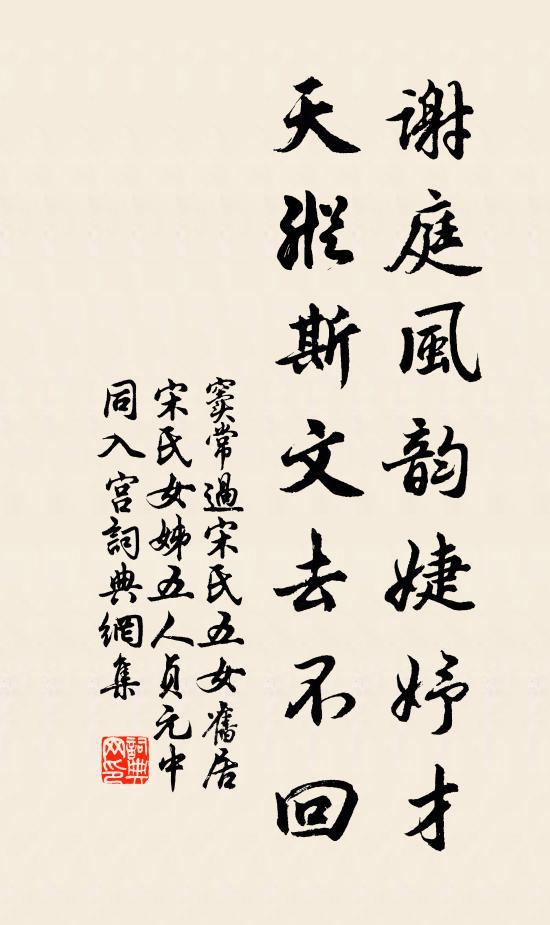 謝庭風韵婕妤才
天縱斯文去不回
竇常過宋氏五女舊居
宋氏女姊五人貞元中
同入宫詞典網集
詞典网印